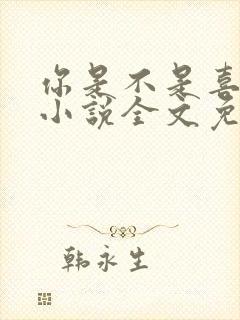 你是不是喜
小说全文免
韩永生